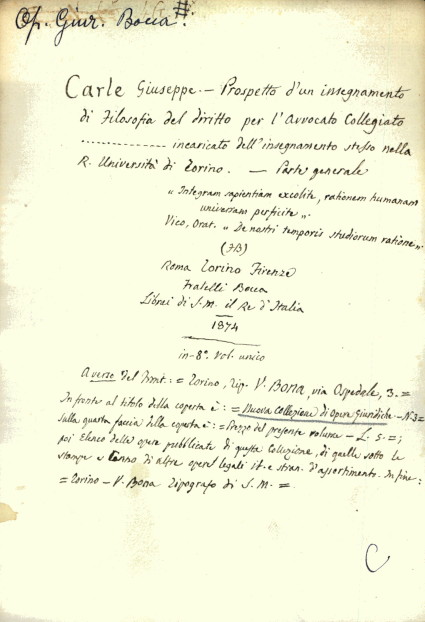 Op. Giur. Bocca #.
Carle Giuseppe. — Prospetto d'un insegnamento
di Filosofia del diritto per l'Avvocato Collegiato
.................. incaricato dell'insegnamento stesso nella
R. Università di Torino. — Parte generale
" Integram sapientiam excolite, rationem humanam
universam perficite ".
Vico, Orat. " De nostri temporis studiorum ratione ".
(FB)
Roma Torino Firenze
Fratelli Bocca
Librai di S. M. il Re d'Italia
1874
in-8º. Vol. unico
Averso del front. : = Torino, Tip. V. Bona, via Ospedale, 3. =
In fronte al titolo della coperta è : = Nuova Collezione di Opere Giuridiche. - N. 3 =
Sulla quarta faccia della coperta è : = Prezzo del presente volume - L. 5. = ;
poi Elenco delle opere pubblicate di questa Collezione, di quelle sotto le
stampe e Cenno di altre opere legali it. e stran. d'assortimento. In fine :
= Torino - V. Bona Tipografo di S. M. =
C